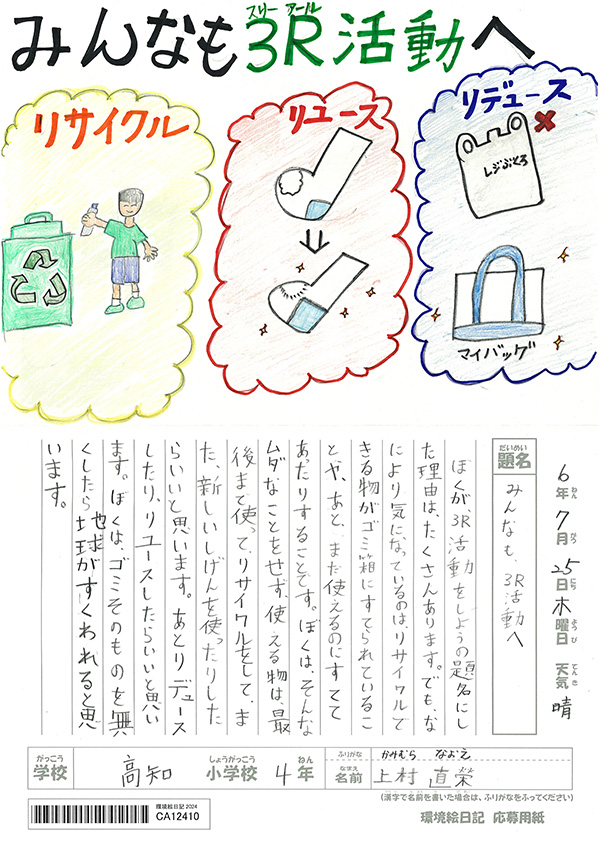 スリー アール
みんなも3R活動へ
リサイクル
リユース
リデュース
レジぶくろ
マイバッグ
6年 7月 25日 木曜日 天気 晴
ねん がつ にち ようび てんき
だいめい
題名
みんなも、3R活動へ
ぼくが、3R活動をしようの題名にし
た理由は、たくさんあります。でも、な
により気になっているのは、リサイクルで
きる物がゴミ箱にすてられているこ
とや、あと、まだ使えるのにすてて
あったりすることです。ぼくは、そんな
ムダなことをせず、使える物は、最
後まで使って、リサイクルをして、ま
た、新しいしげんを使ったりした
らいいと思います。あとリデュース
したり、リユースしたらいいと思い
ます。ぼくは、ゴミそのものを無
くしたら地球がすくわれると思
います。
がっこう しょうがっこう ねん ふりがな かみむら なおえ
学校 高知 小学校 4年 なまえ 名前 上村 直榮
(漢字で名前を書いた場合は、ふりがなをふってください)
環境絵日記 2024
CA12410
環境絵日記 応募用紙